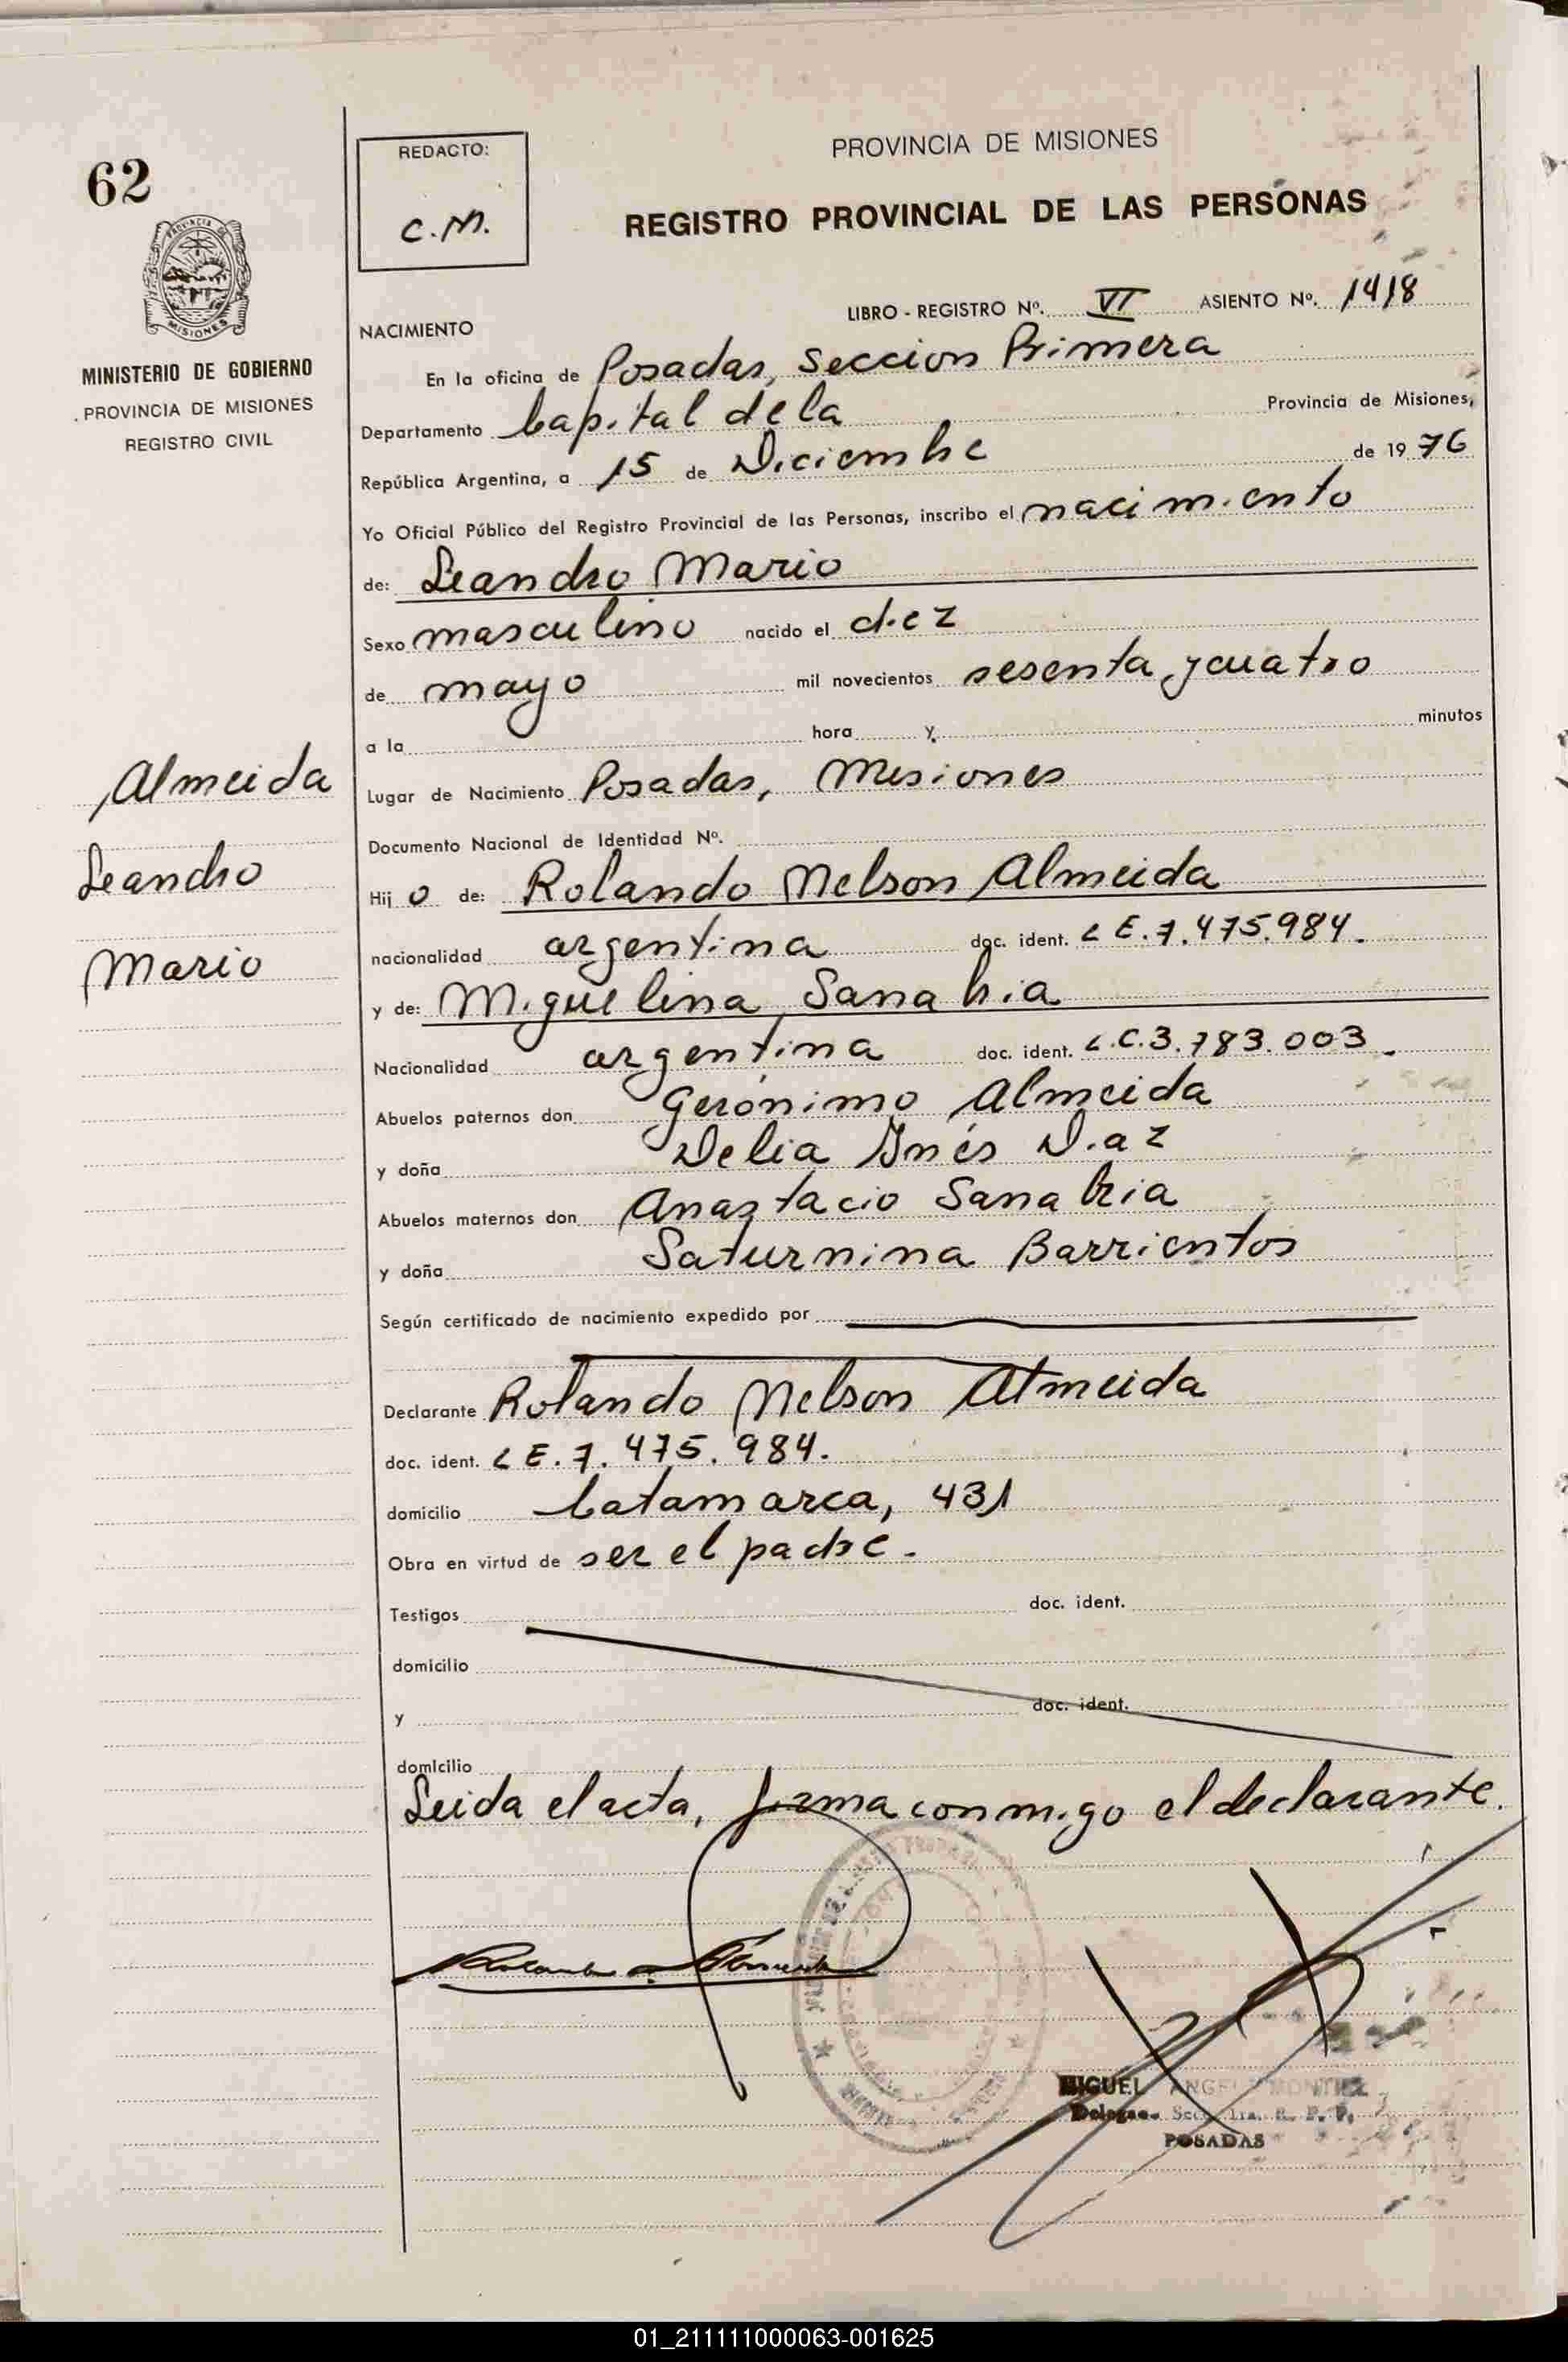 62
MINISTERIO DE GOBIERNO
PROVINCIA DE MISIONES
REGISTRO CIVIL
Almeida
Leandro
Mario
REDACTO:
C.M.
PROVINCIA DE MISIONES
REGISTRO PROVINCIAL DE LAS PERSONAS
LIBRO - REGISTRO Nº. VI ASIENTO Nº. 1418
NACIMIENTO
En la oficina de Posadas, Seccion Primera
Departamento Capital de la Provincia de Misiones,
República Argentina, a 15 de Diciembre de 1976
Yo Oficial Público del Registro Provincial de las Personas, inscribo el nacimiento
de: Leandro Mario
Sexo masculino nacido el diez
de mayo mil novecientos sesenta y cuatro
a la hora y minutos
Lugar de Nacimiento Posadas, Misiones
Documento Nacional de Identidad Nº.
Hij o de: Rolando Nelson Almeida
nacionalidad argentina doc. ident. L E. 7.475.984.
y de: Miguelina Sanabria
Nacionalidad argentina doc. ident. L.C.3.783.003.
Abuelos paternos don Gerónimo Almeida
y doña Delia Inés Diaz
Abuelos maternos don Anastacio Sanabria
y doña Saturnina Barrientos
Según certificado de nacimiento expedido por
Declarante Rolando Nelson Almeida
doc. ident. L E. 7. 475. 984.
domicilio Catamarca, 431
Obra en virtud de ser el padre.
Testigos doc. ident.
domicilio
y doc. ident.
domicilio
Leida el acta, firma conmigo el declarante.
MIGUEL ANGEL MONTIEL
R. P. P.
POSADAS
01_211111000063-001625